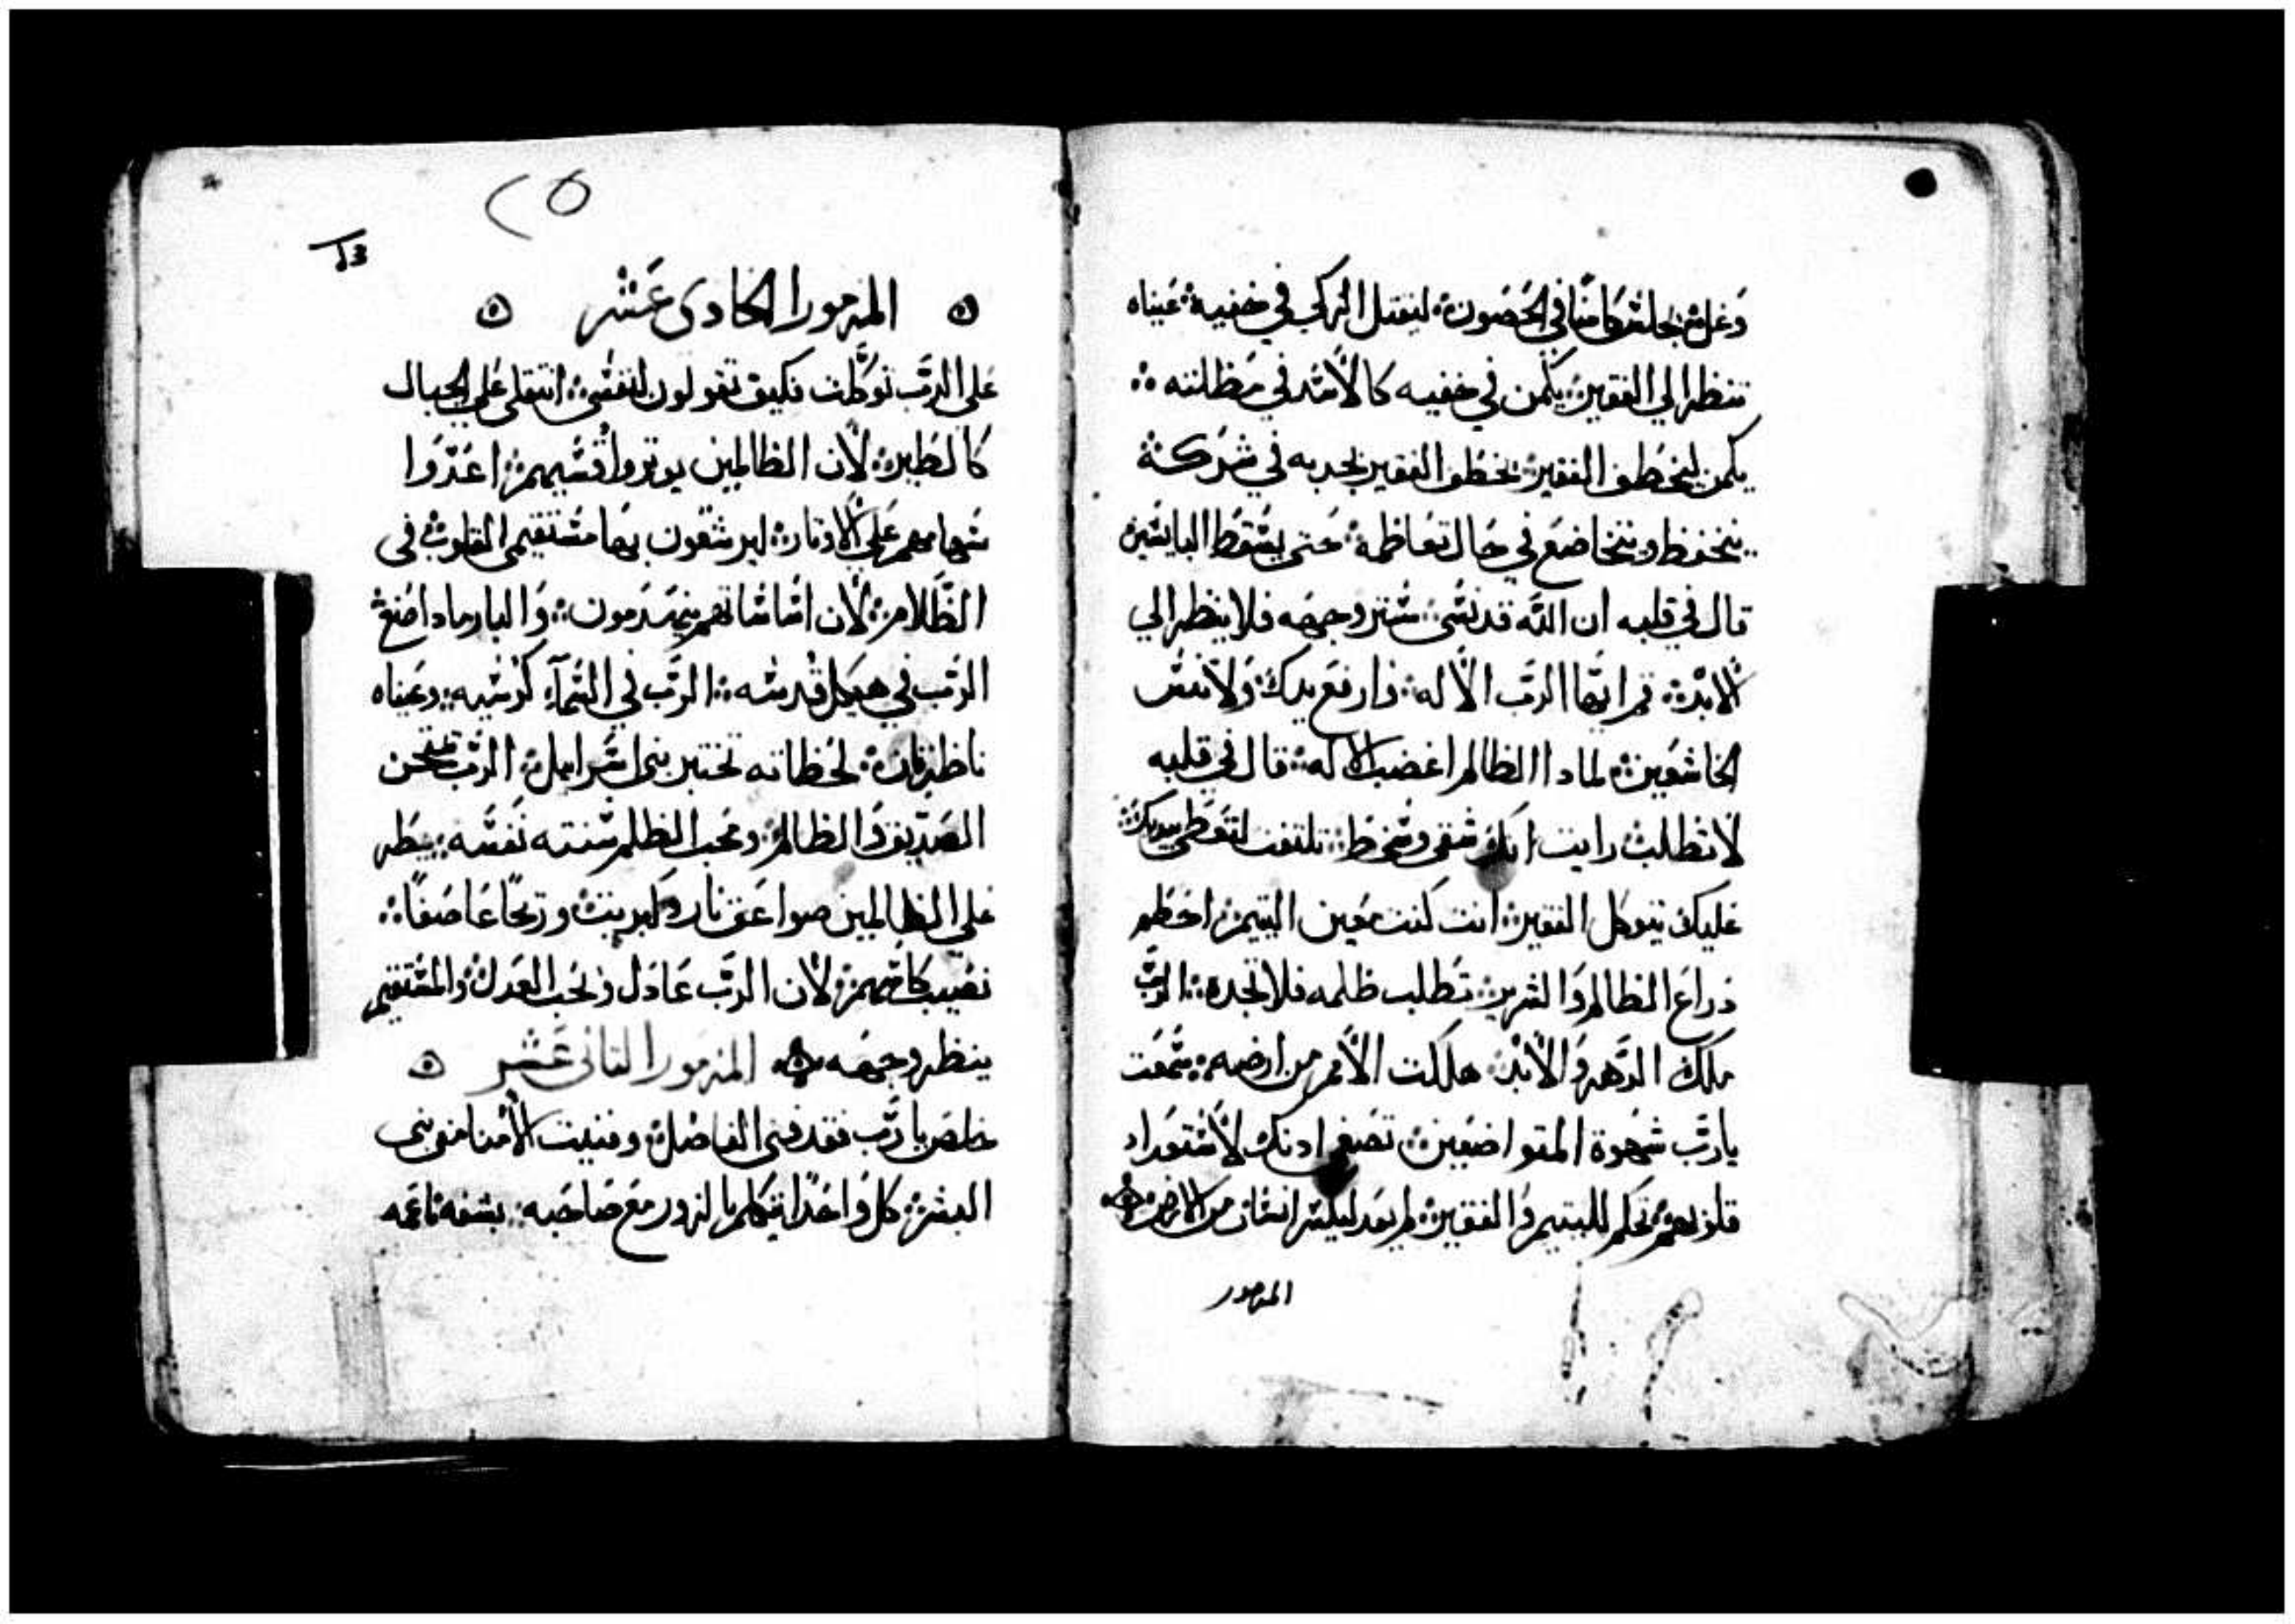 وغل يجلس كامنًا في الحصون ليقتل الزكي في خفية عيناه
تنظر الي الفقير يكمن في خفيه كالأسد في مظلته
يكمن ليخطف الفقير يخطف الفقير بجدبه في شركة
يتحفظ ويتخاضع في حال تعاظمه حتي يسقط البايسين
قال في قلبه ان الله قد نسي ستر وجهه فلا ينظر الي
الابد قم ايها الرب الاله وارفع يدك ولا تنس
الخاشعين لمادا الظالم اغضب الاله قال في قلبه
لا تطلب رايت انك شقي وسخط تلتفت لتعطي بيديك
عليك يتوكل الفقير انت كنت معين اليتيم احطم
دراع الظالم والشرير تطلب ظلمه فلا تجده الرب
ملك الدهر والأبد هلكت الأمم من ارضه سمعت
يارب شهوة المتواضعين تصغي ادنك لأستعداد
قلوبهم تحكم لليتيم والفقير لم يعد ليلشر انسان من الارض
المزمور
٢٥
المزمور الحادي عشر
علي الرب توكلت فكيف تقولون لنفسي انتقلي علي الجبال
كالطير لأن الظالمين يوتروا قسيهم اعدوا
سهامهم علي الاوتار ليرشقون بها مستقيمي القلوب في
الظلام لأن اساساتهم يهدمون والبار مادا صنع
الرب في هيكل قدسه الرب في السمآء كرسيه وعيناه
ناظرتان لحظاته تختبر بني اسرايل الرب يمتحن
الصديق والظالم ومحب الظلم شنته نفسه يمطر
علي الظالمين صواعق نار وكبريت وريحًا عاصفًا
نصيب كاسهم لأن الرب عادل ولحب العدل والمستقيم
ينظر وجهه المزمور التاني عشر
خلصن يارب فقد فني الفاضل وفنيت الأمنا من بني
البشر كل واحدًا يتكلم بالزور مع صاحبه بشفه ناعمه